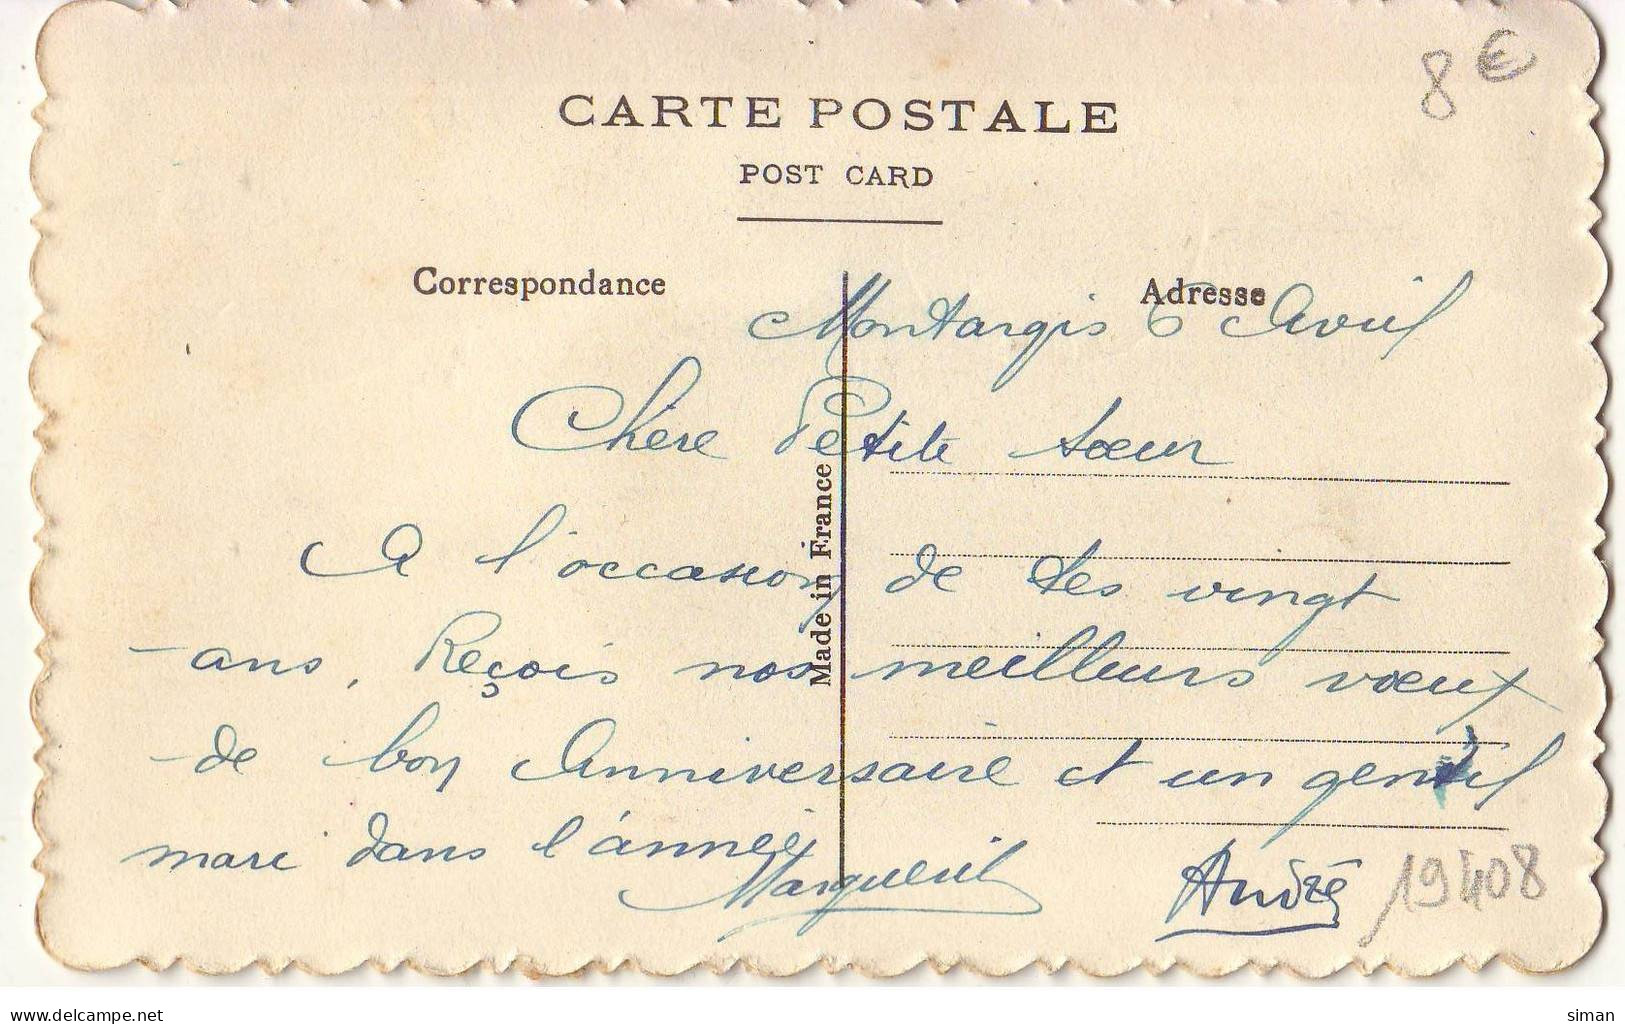 8 €
CARTE POSTALE
POST CARD
Correspondance
Adresse
Montargis 6 Avril
Chère Petite sœur
A l'occasion de tes vingt
ans, Reçois nos meilleurs vœux
de bon Anniversaire et un gentil
mari dans l'année
Marguerite
André
19408
Made in France
delcampe.net
siman